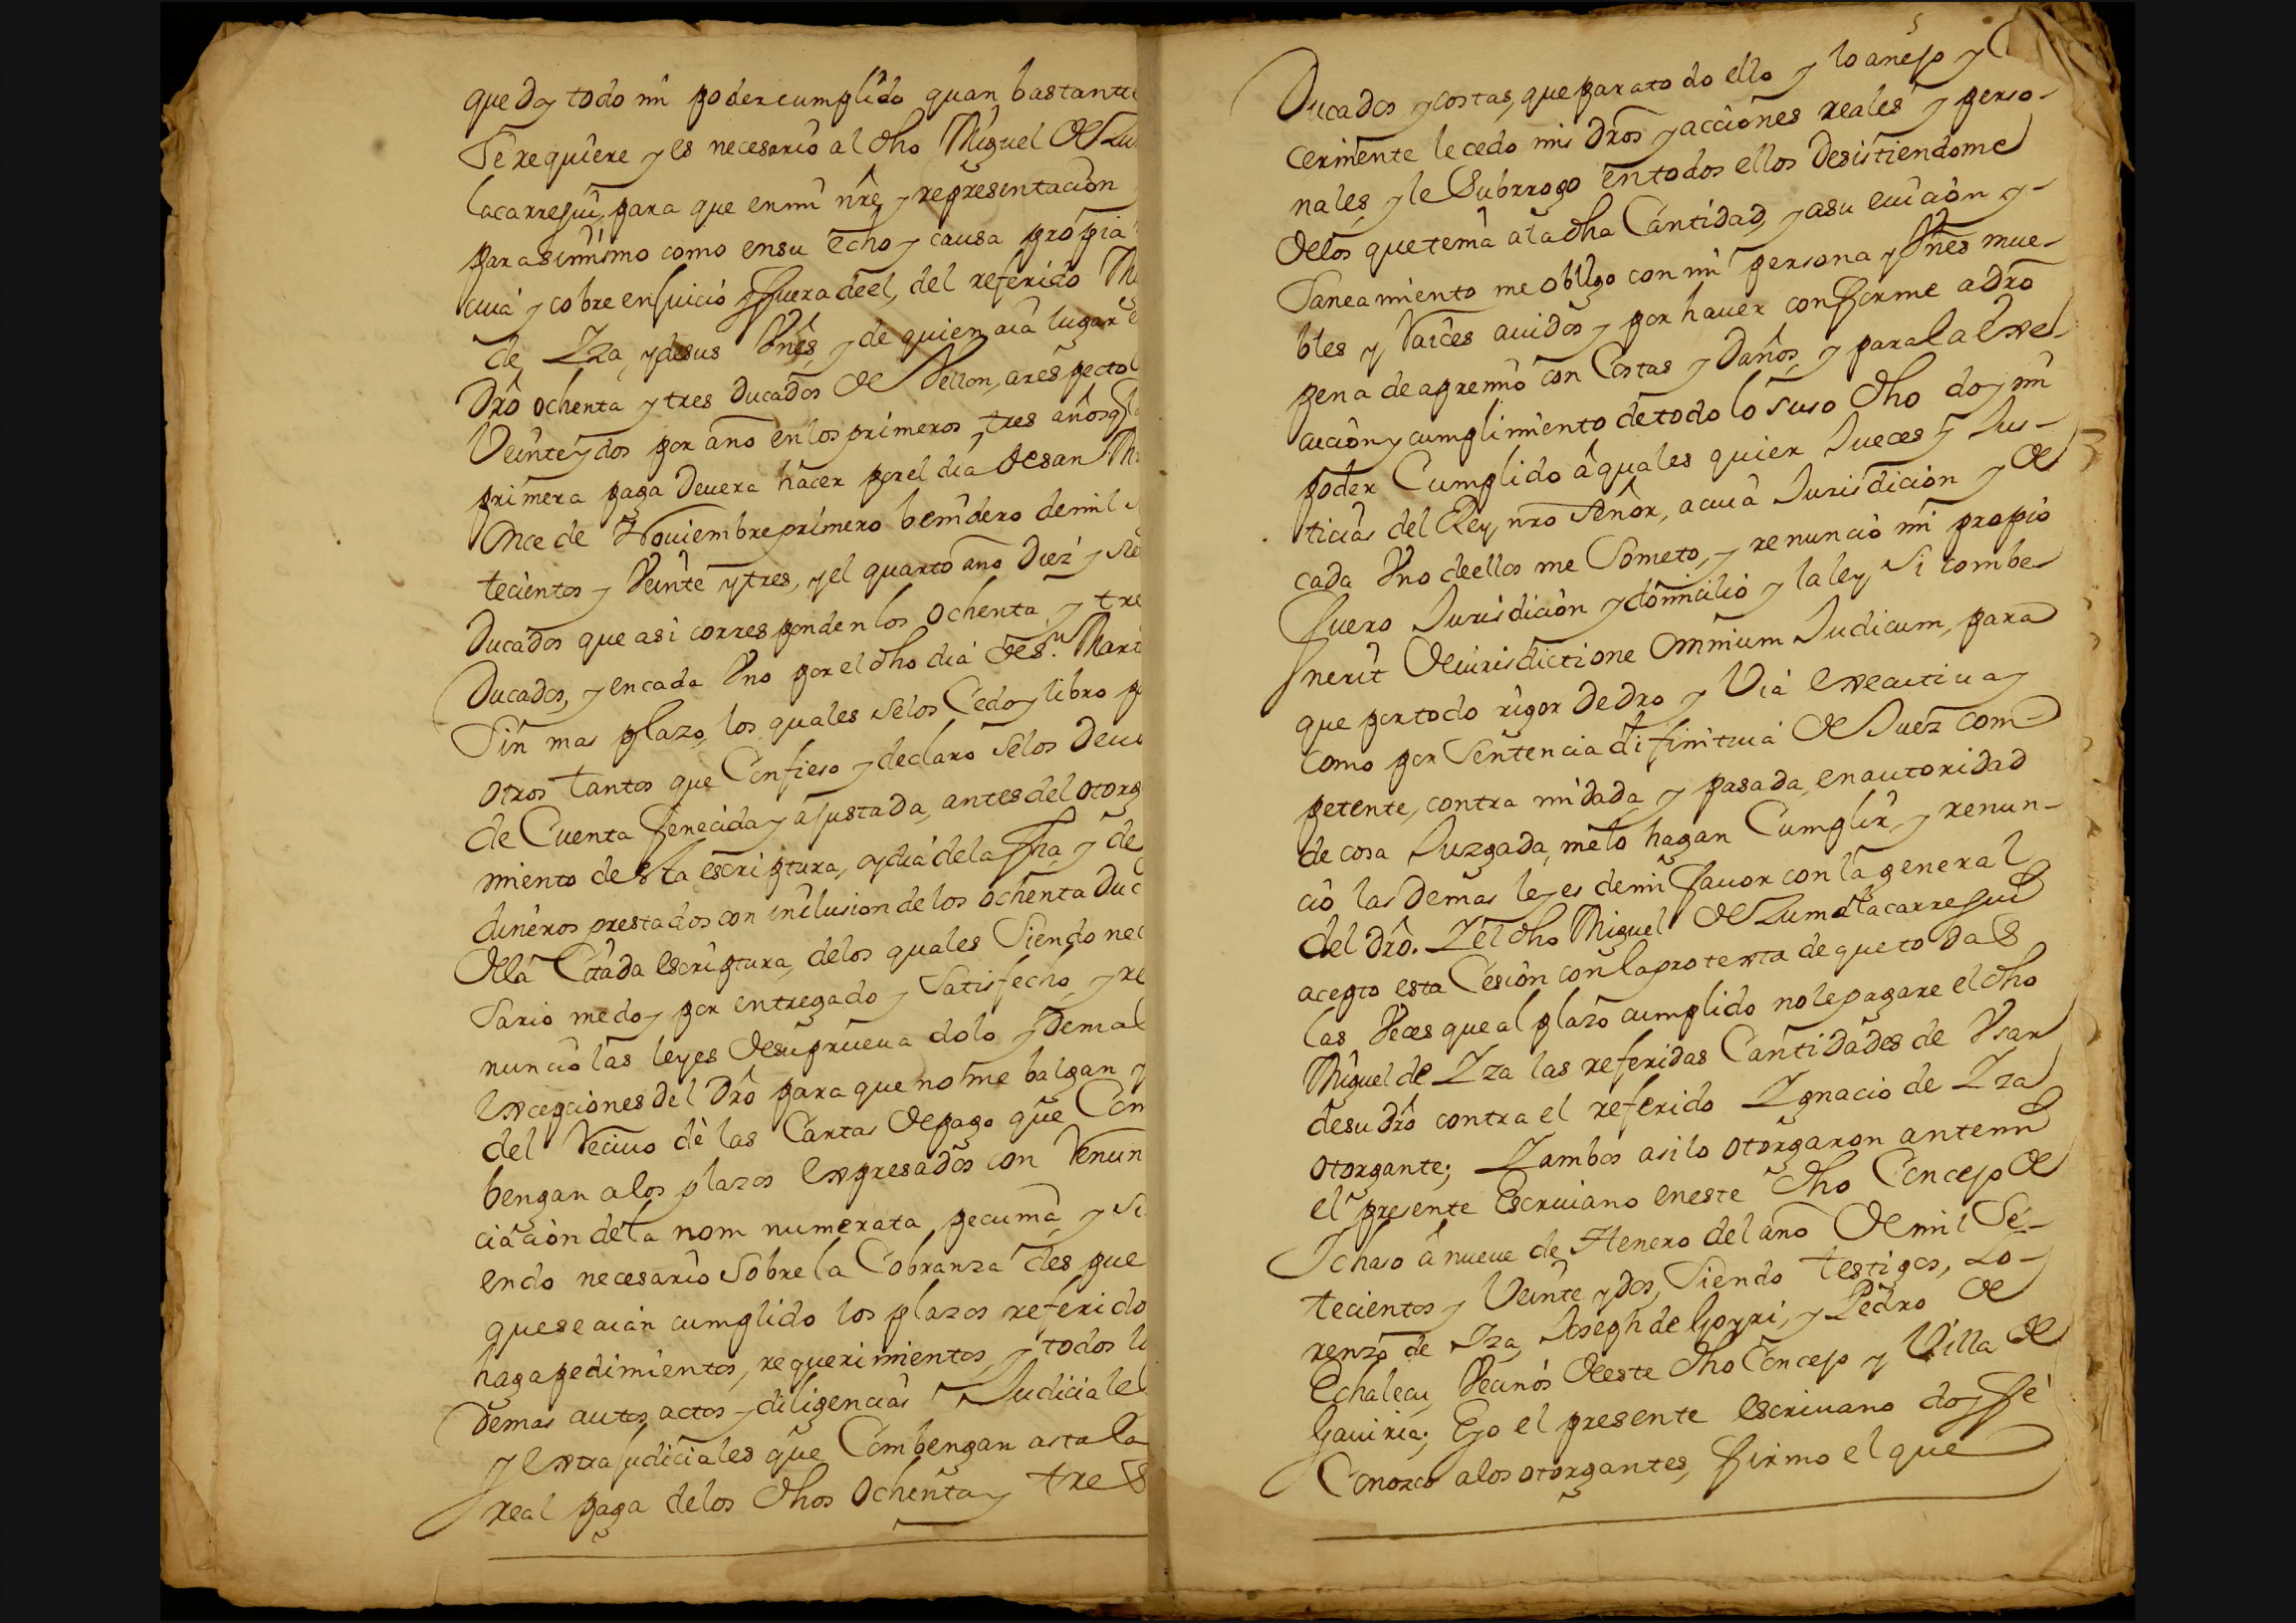 que doy todo mi poder cumplido quan bastante
Se requiere y es necesario al dho Miguel de Zu
lacarregui, para que en mi nre y representacion
para si mismo como en su echo y causa propia
ciua y cobre en juicio y fuera de el, del referido Mi
de Yza, y de sus Vnes, y de quien aia lugar e
Dro ochenta y tres Ducados de Vellon, a respecto
Veinte y dos por año en los primeros tres años q la
primera paga deuera hacer por el dia de san M
Once de Nouiembre primero benidero de mil s
tecientos y Veinte y tres, y el quarto año Diez y sie
Ducados que asi corresponden los ochenta y tre
Ducados, y en cada Vno por el dho dia de Sn. Mart
Sin mas plazo, los quales se los Cedo y libro p
otros tantos que Confieso y declaro se los deu
de Cuenta fenecida y ajustada, antes del otorg
miento de esta escriptura, oy dia de la fha y de
dineros prestados con inclusion de los ochenta Duc
de la Citada escriptura, de los quales Siendo nec
Sario me doy por entregado y Satisfecho, y re
nuncio las leyes de su prueua dolo y demas
excepciones del Dro para que no me balgan y
del Reciuo de las Cartas de pago que Con
bengan a los plazos expresados con Renun
ciacion de la nom numerata pecunia y Si
endo necesario Sobre la Cobranza des que
que se aian cumplido los plazos referido
haga pedimientos, requerimientos, y todos l
demas autos, actos y diligencias Judiciales
y extrajudiciales que Combengan asta la
real paga de los dhos ochenta y tres
5
Ducados y costas, que para todo ello y lo anejo y
cerniente le cedo mis dros y acciones reales y perso-
nales, y le Subrrogo en todos ellos Desistiendome
de los que tenia a la dha Cantidad, y a su euicion y
Saneamiento me obligo con mi persona y Vnes mue-
bles y Raices auidos y por hauer conforme a dro
pena de apremio con Costas y Daños, y para la exe
cucion y cumplimiento de todo lo suso dho doy mi
poder Cumplido a quales quier Jueces y Jus-
ticias del Rey nro Señor, a cuia Jurisdicion y de
cada Vno de ellos me Someto, y renuncio mi propio
fuero Jurisdicion y domicilio y la ley Si combe
nerit de iurisdictione Omnium Judicum, para
que por todo rigor de dro y Via executiua y
como por Sentencia difinitiua de Juez com
petente, contra mi dada y pasada, en autoridad
de cosa Juzgada, me lo hagan Cumplir, y renun-
cio las demas leyes de mi fauor con la general
del dro. Y el dho Miguel de Zumalacarregui
acepto esta Cesion con la protexta de que todas
las Veces que al plazo cumplido no le pagare el dho
Miguel de Yza las referidas Cantidades de Vsar
de su dro contra el referido Ygnacio de Yza
otorgante; Y ambos asi lo otorgaron ante mi
el presente Escriuano en este dho Concejo de
Ichaso a nueue de Henero del año de mil Se-
tecientos y Veinte y dos, Siendo testigos, Lo-
renzo de Yza, Joseph de Goyri, y Pedro de
Echalecu Vecinos de este dho Concejo y Villa de
Gauiria; E yo el presente escriuano doy fe
Conozco a los otorgantes, firmo el que